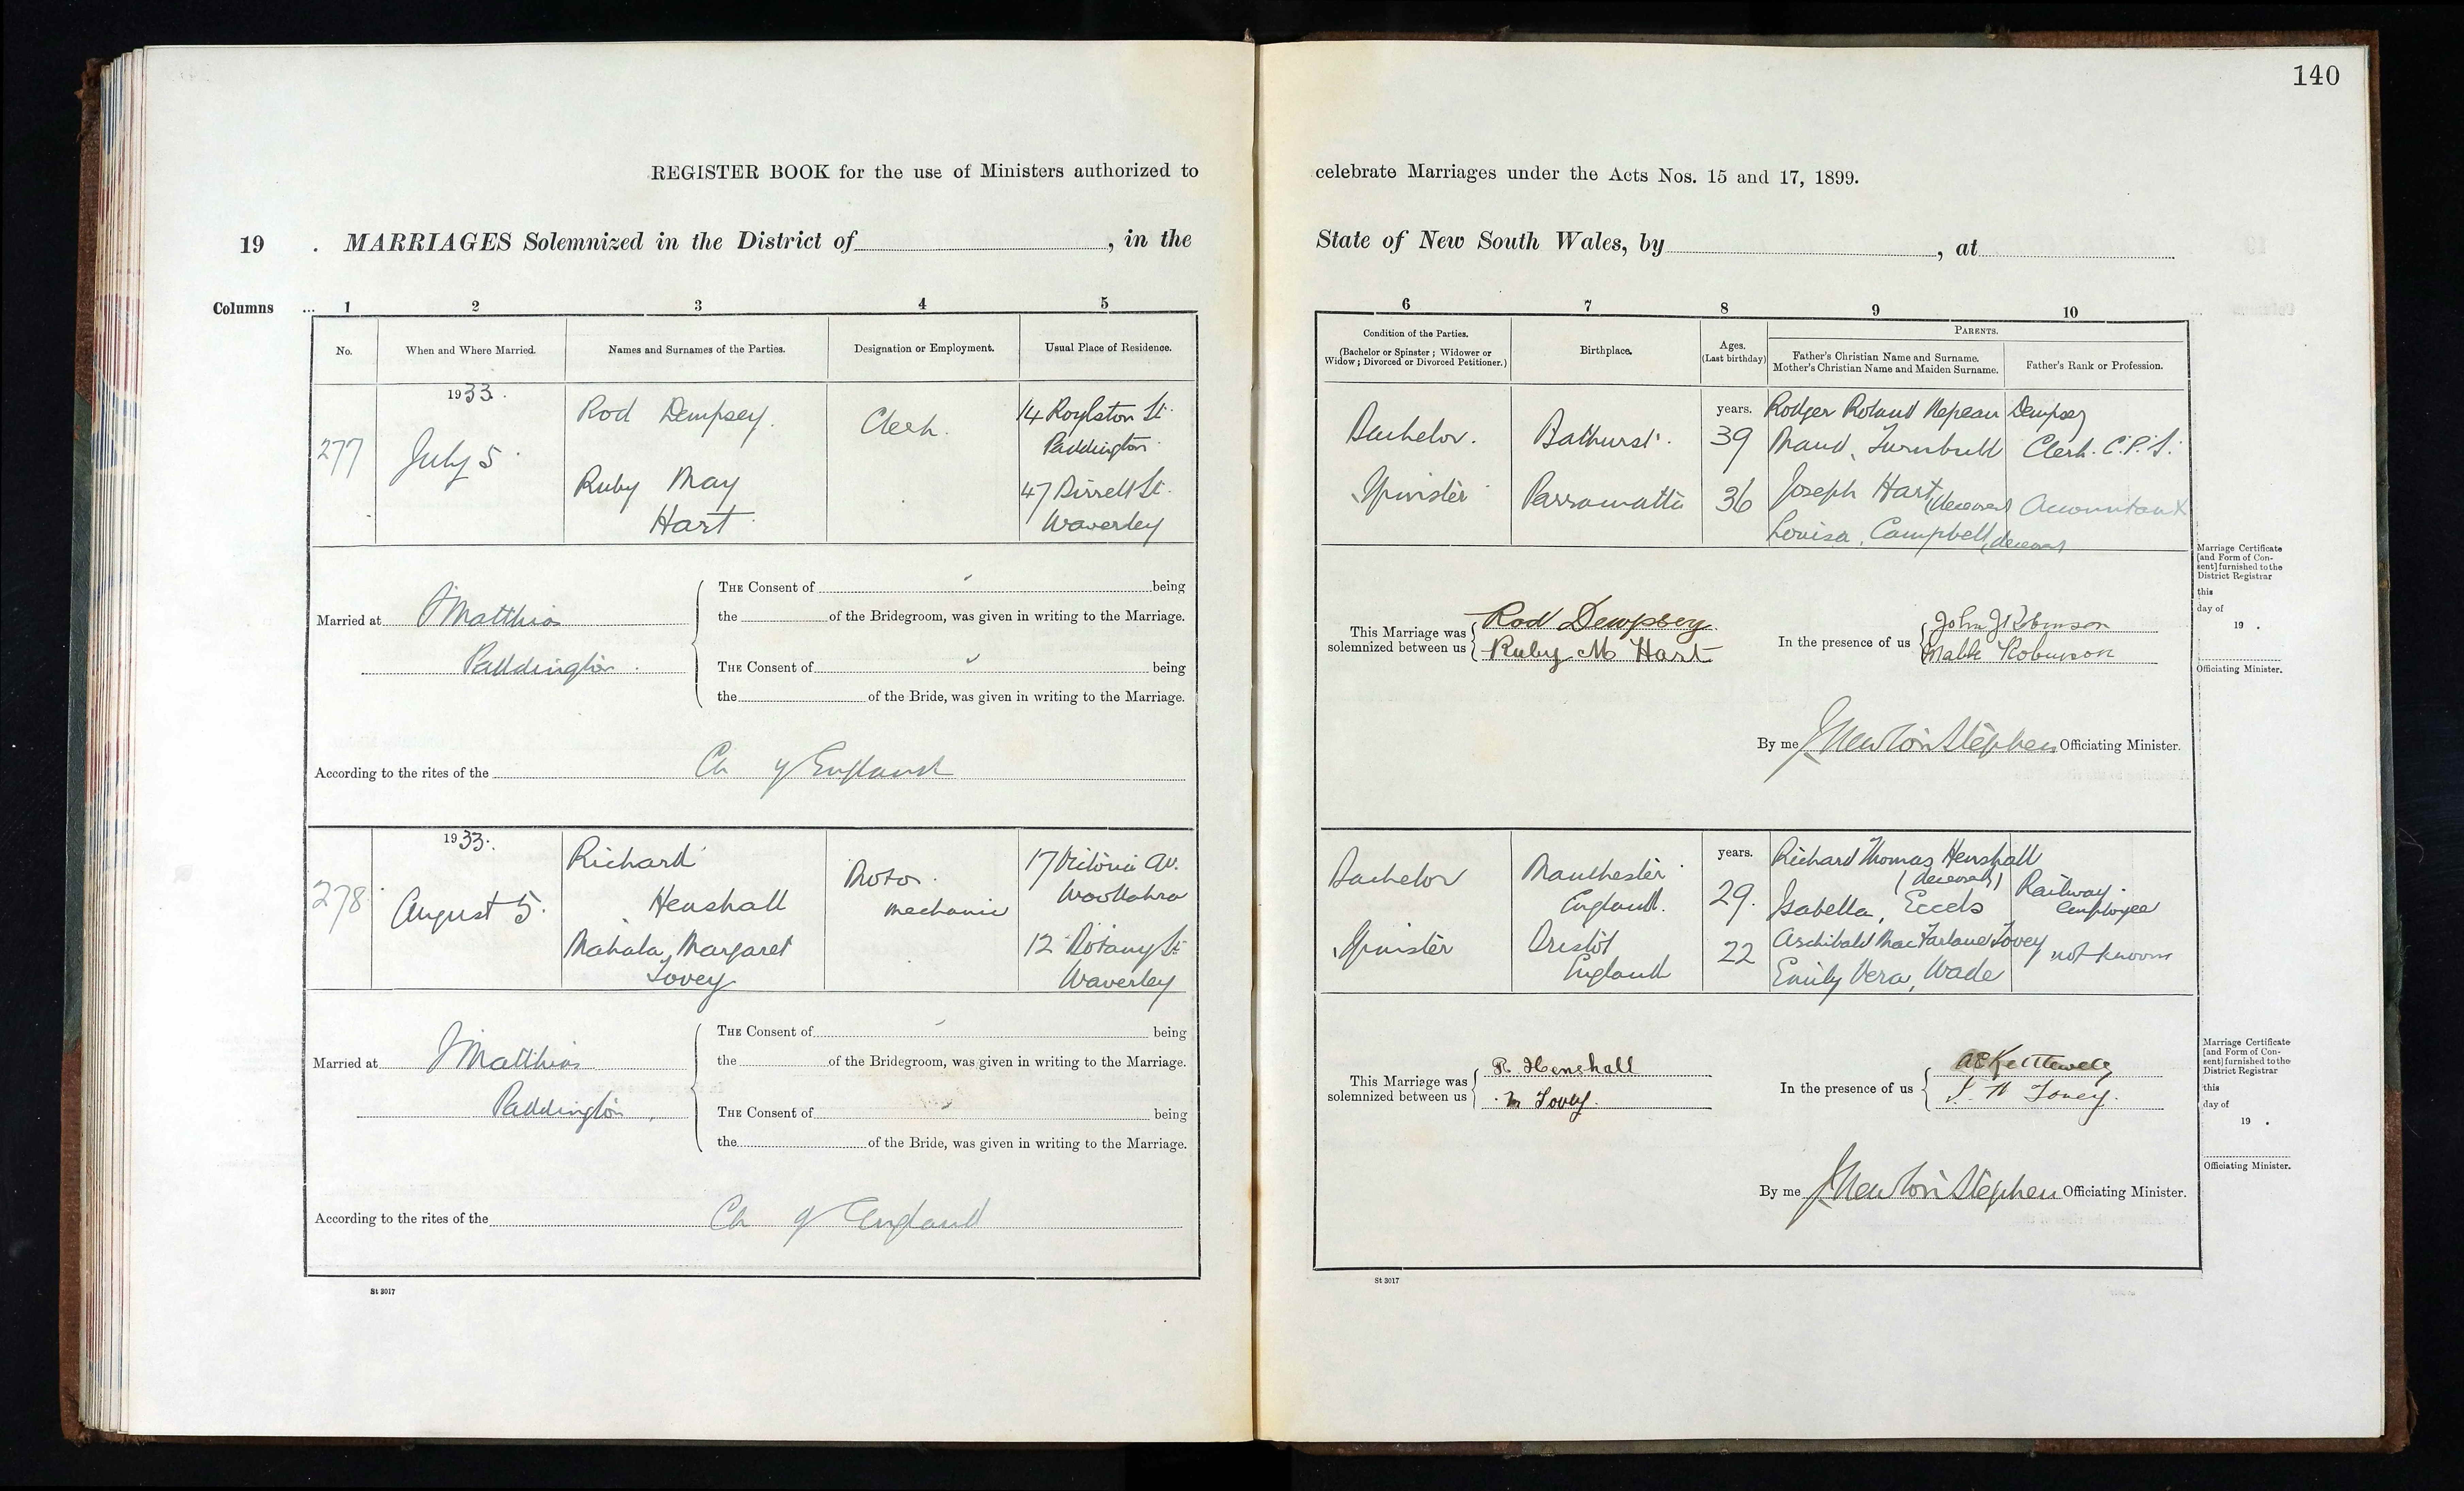 140
REGISTER BOOK for the use of Ministers authorized to
celebrate Marriages under the Acts Nos. 15 and 17, 1899.
19 . MARRIAGES Solemnized in the District of , in the
State of New South Wales, by , at
Columns ... 1 2 3 4 5
6 7 8 9 10
No.
When and Where Married.
Names and Surnames of the Parties.
Designation or Employment.
Usual Place of Residence.
Condition of the Parties.
(Bachelor or Spinster ; Widower or
Widow ; Divorced or Divorced Petitioner.)
Birthplace.
Ages.
(Last birthday)
PARENTS.
Father's Christian Name and Surname.
Mother's Christian Name and Maiden Surname.
Father's Rank or Profession.
277
1933.
July 5.
Rod Dempsey.
Ruby May
Hart.
Clerk.
14 Roylston St.
Paddington
47 Birrell St.
Waverley
Bachelor.
Spinster
Bathurst.
Parramatta
years.
39
36
Rodger Roland Nepean Dempsey
Maud, Turnbull
Clerk. C.P.S.
Joseph Hart (deceased)
Accountant
Louisa, Campbell, deceased
Married at St Matthias
Paddington.
THE Consent of being
the of the Bridegroom, was given in writing to the Marriage.
THE Consent of being
the of the Bride, was given in writing to the Marriage.
According to the rites of the Ch of England
This Marriage was
solemnized between us
Rod Dempsey.
Ruby M Hart
In the presence of us
John J Robinson
Mabk Robinson
By me J Newton Stephen Officiating Minister.
Marriage Certificate
[and Form of Con-
sent] furnished to the
District Registrar
this
day of
19 .
Officiating Minister.
278
1933.
August 5.
Richard
Henshall
Mahala, Margaret
Tovey
Motor
mechanic
17 Victoria Av.
Woollahra
12 Botany St.
Waverley
Bachelor
Spinster
Manchester
England.
Bristol
England
years.
29.
22
Richard Thomas Henshall
(deceased)
Isabella, Eccels
Railway
employee
Archibald MacFarlane Tovey
not known
Emily Vera, Wade
Married at St Matthias
Paddington,
THE Consent of being
the of the Bridegroom, was given in writing to the Marriage.
THE Consent of being
the of the Bride, was given in writing to the Marriage.
According to the rites of the Ch of England
This Marriage was
solemnized between us
R Henshall
M Tovey.
In the presence of us
Tovey.
By me J Newton Stephen Officiating Minister.
Marriage Certificate
[and Form of Con-
sent] furnished to the
District Registrar
this
day of
19 .
Officiating Minister.
St 3017
St 3017